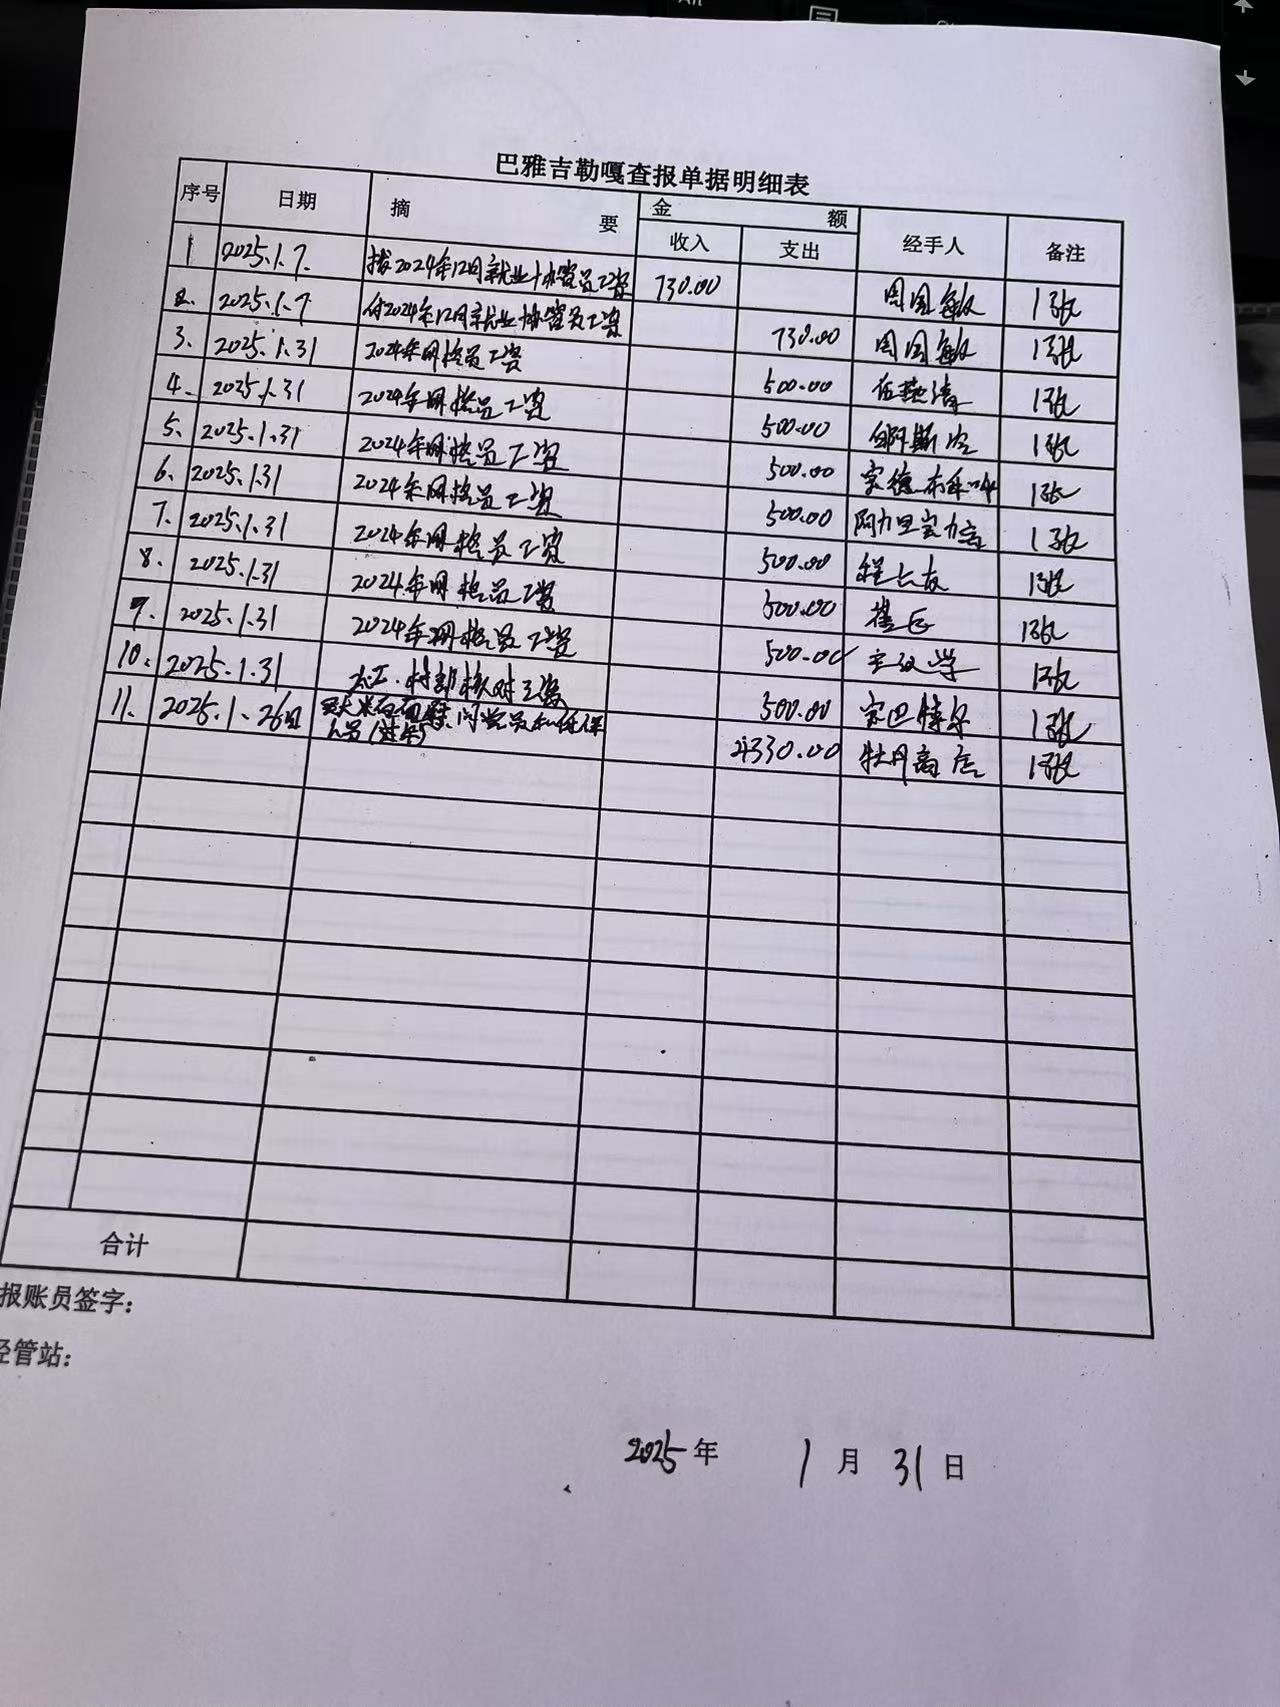 巴雅吉勒嘎查报单据明细表
序号 日期 摘要 金额 经手人 备注
收入 支出
1 2025.1.7. 拨2024年12月就业协管员工资 730.00 周国敏 1张
2. 2025.1.7 付2024年12月就业协管员工资 730.00 周国敏 1张
3. 2025.1.31 2024年网格员工资 500.00 1张
4. 2025.1.31 2024年网格员工资 500.00 1张
5. 2025.1.31 2024年网格员工资 500.00 1张
6. 2025.1.31 2024年网格员工资 500.00 阿力里宝力高 1张
7. 2025.1.31 2024年网格员工资 500.00 程上友 1张
8. 2025.1.31 2024年网格员工资 500.00 1张
9. 2025.1.31 2024年网格员工资 500.00 1张
10. 2025.1.31 工资 500.00 宝巴特尔 1张
11. 2025.1.26日 党员和低保 4330.00 牡丹商店 1张
合计
报账员签字:
经管站:
2025年 1月31日